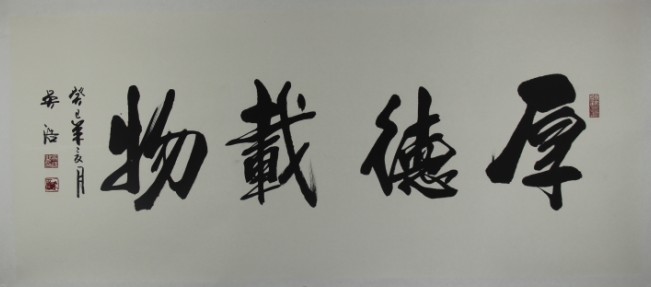 厚德載物
癸巳年亥月